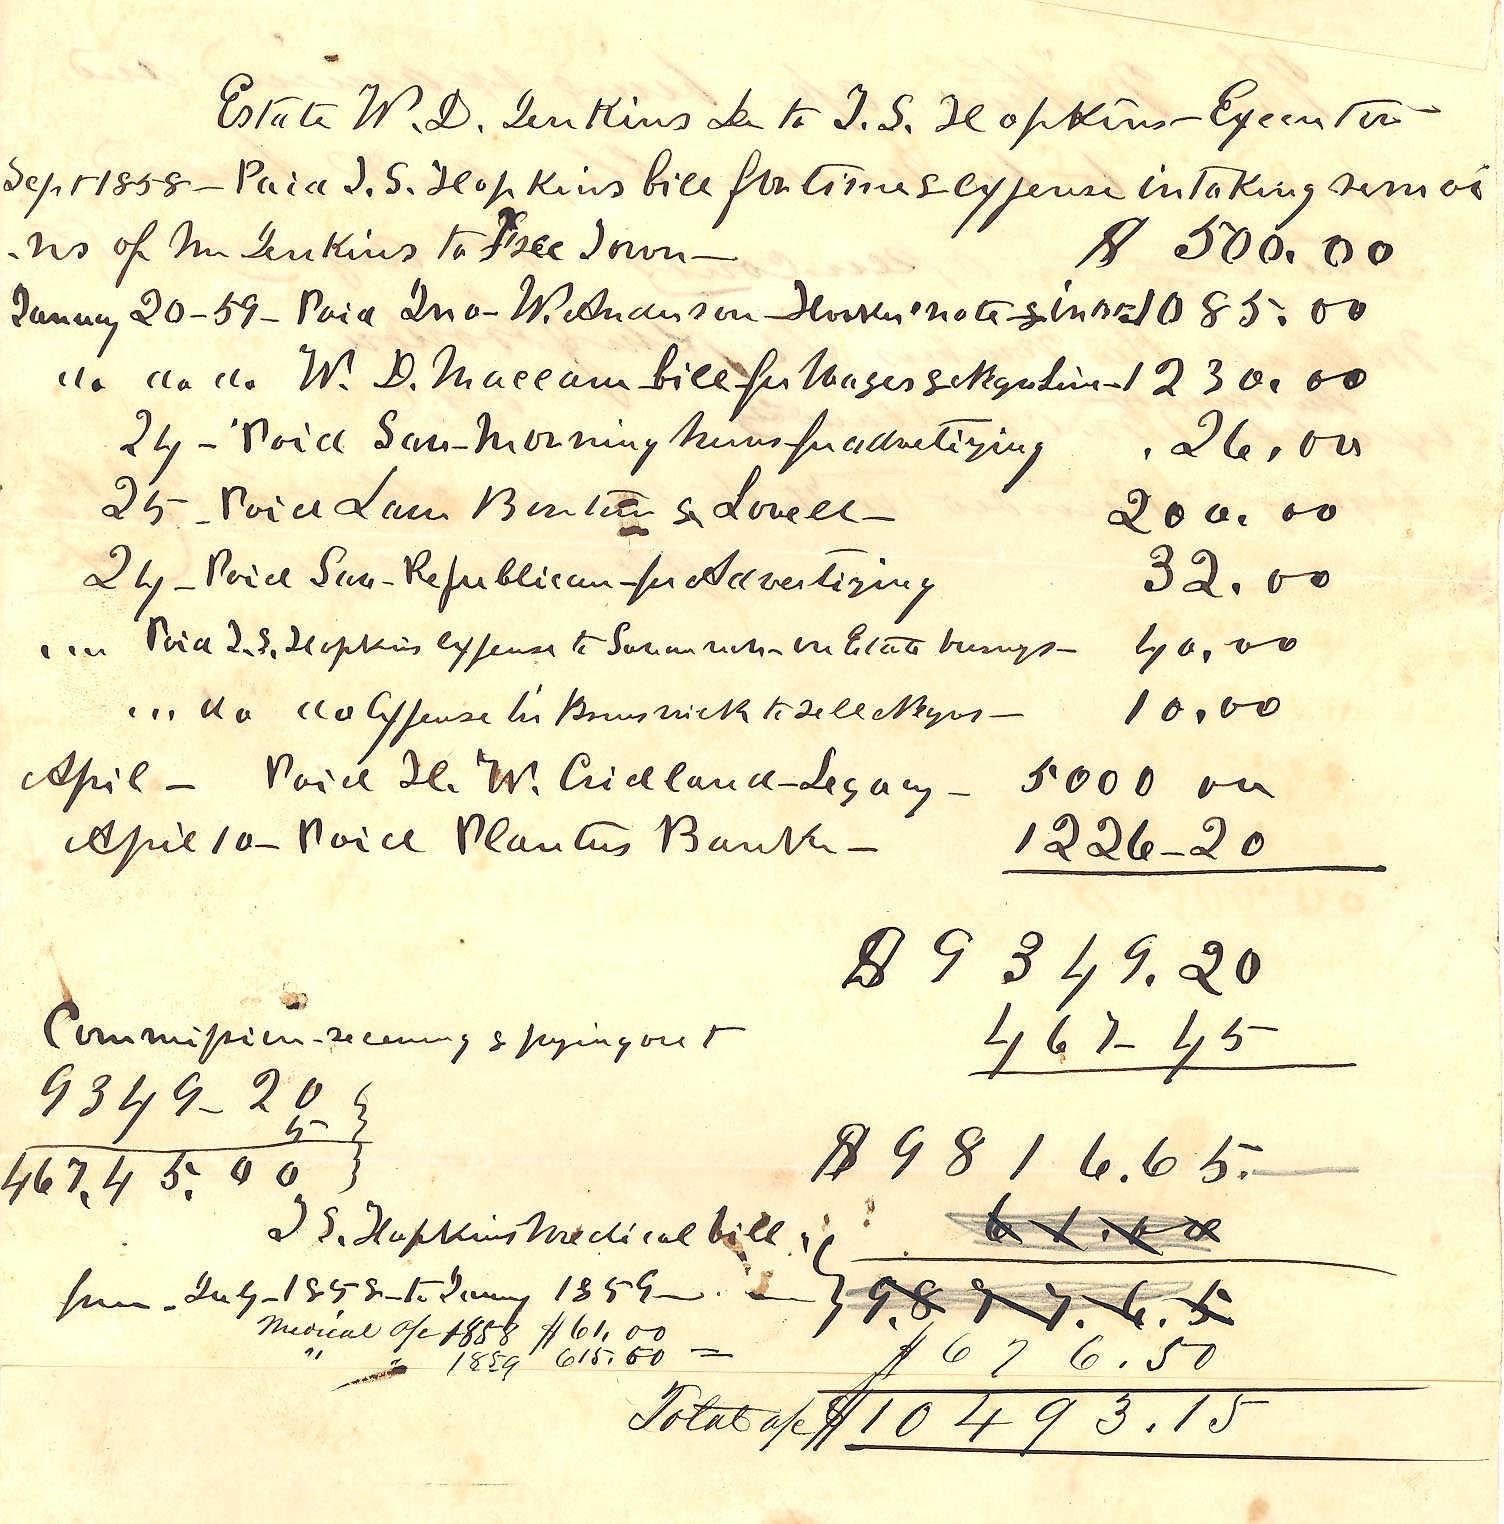 Estate W. D. Jenkins Dr to T. S. Hopkins - Executor
Sept 1858 - Paid T. S. Hopkins bill for time & expense in taking remai
-ns of Mr Jenkins to Free Town - $ 500.00
January 20-59 - Paid Jno - W. Anderson - note & int 1085.00
do do do W. D. bill for Wages & Negro 1230.00
24 - Paid Sav - Morning News for advertizing . 26.00
25 - Paid Law & Lovell - 200.00
24 - Paid Sav - Republican - for Advertizing 32.00
" " Paid T. S. Hopkins expense to Savannah - on Estate - 40.00
" " do do Expense to Brunswick to sell Negros - 10.00
April - Paid H. W. Cridland - Legacy - 5000 00
April 10 - Paid Planters Bank - 1226-20
$ 9349.20
Commission - receiving & paying out 467-45
9349-20
5
467.45.00
$ 9816.65.
T S. Hopkins Medical bill 61.00
from - July - 1858 - to January 1859 - 9.877.65
Medical a/c 1858 $61.00
" " 1859 615.50 = $676.50
Total a/c $10493.15